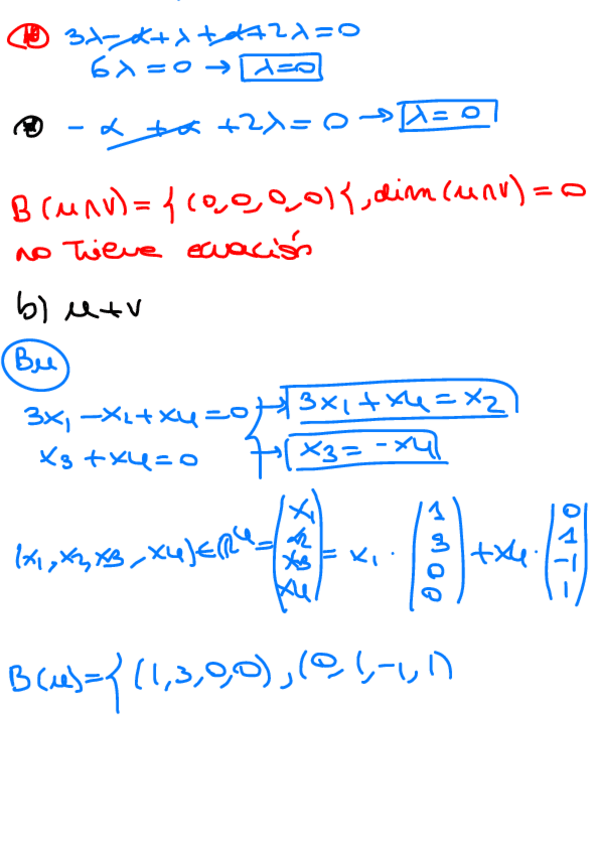 3λ-α+λ+α+2λ=0
6λ=0 → λ=0
-α+α+2λ=0 → λ=0
B(u∩v)={(0,0,0,0){, dim(u∩v)=0
no tiene ecuación
b) u+v
Bu
3x₁-x₂+x₄=0 → 3x₁+x₄=x₂
x₃+x₄=0 → x₃=-x₄
(x₁,x₂,x₃,x₄)∈ℝ⁴=(x₁ x₂ x₃ x₄)=x₁·(1 3 0 0)+x₄·(0 1 -1 1)
B(u)={(1,3,0,0),(0,1,-1,1)